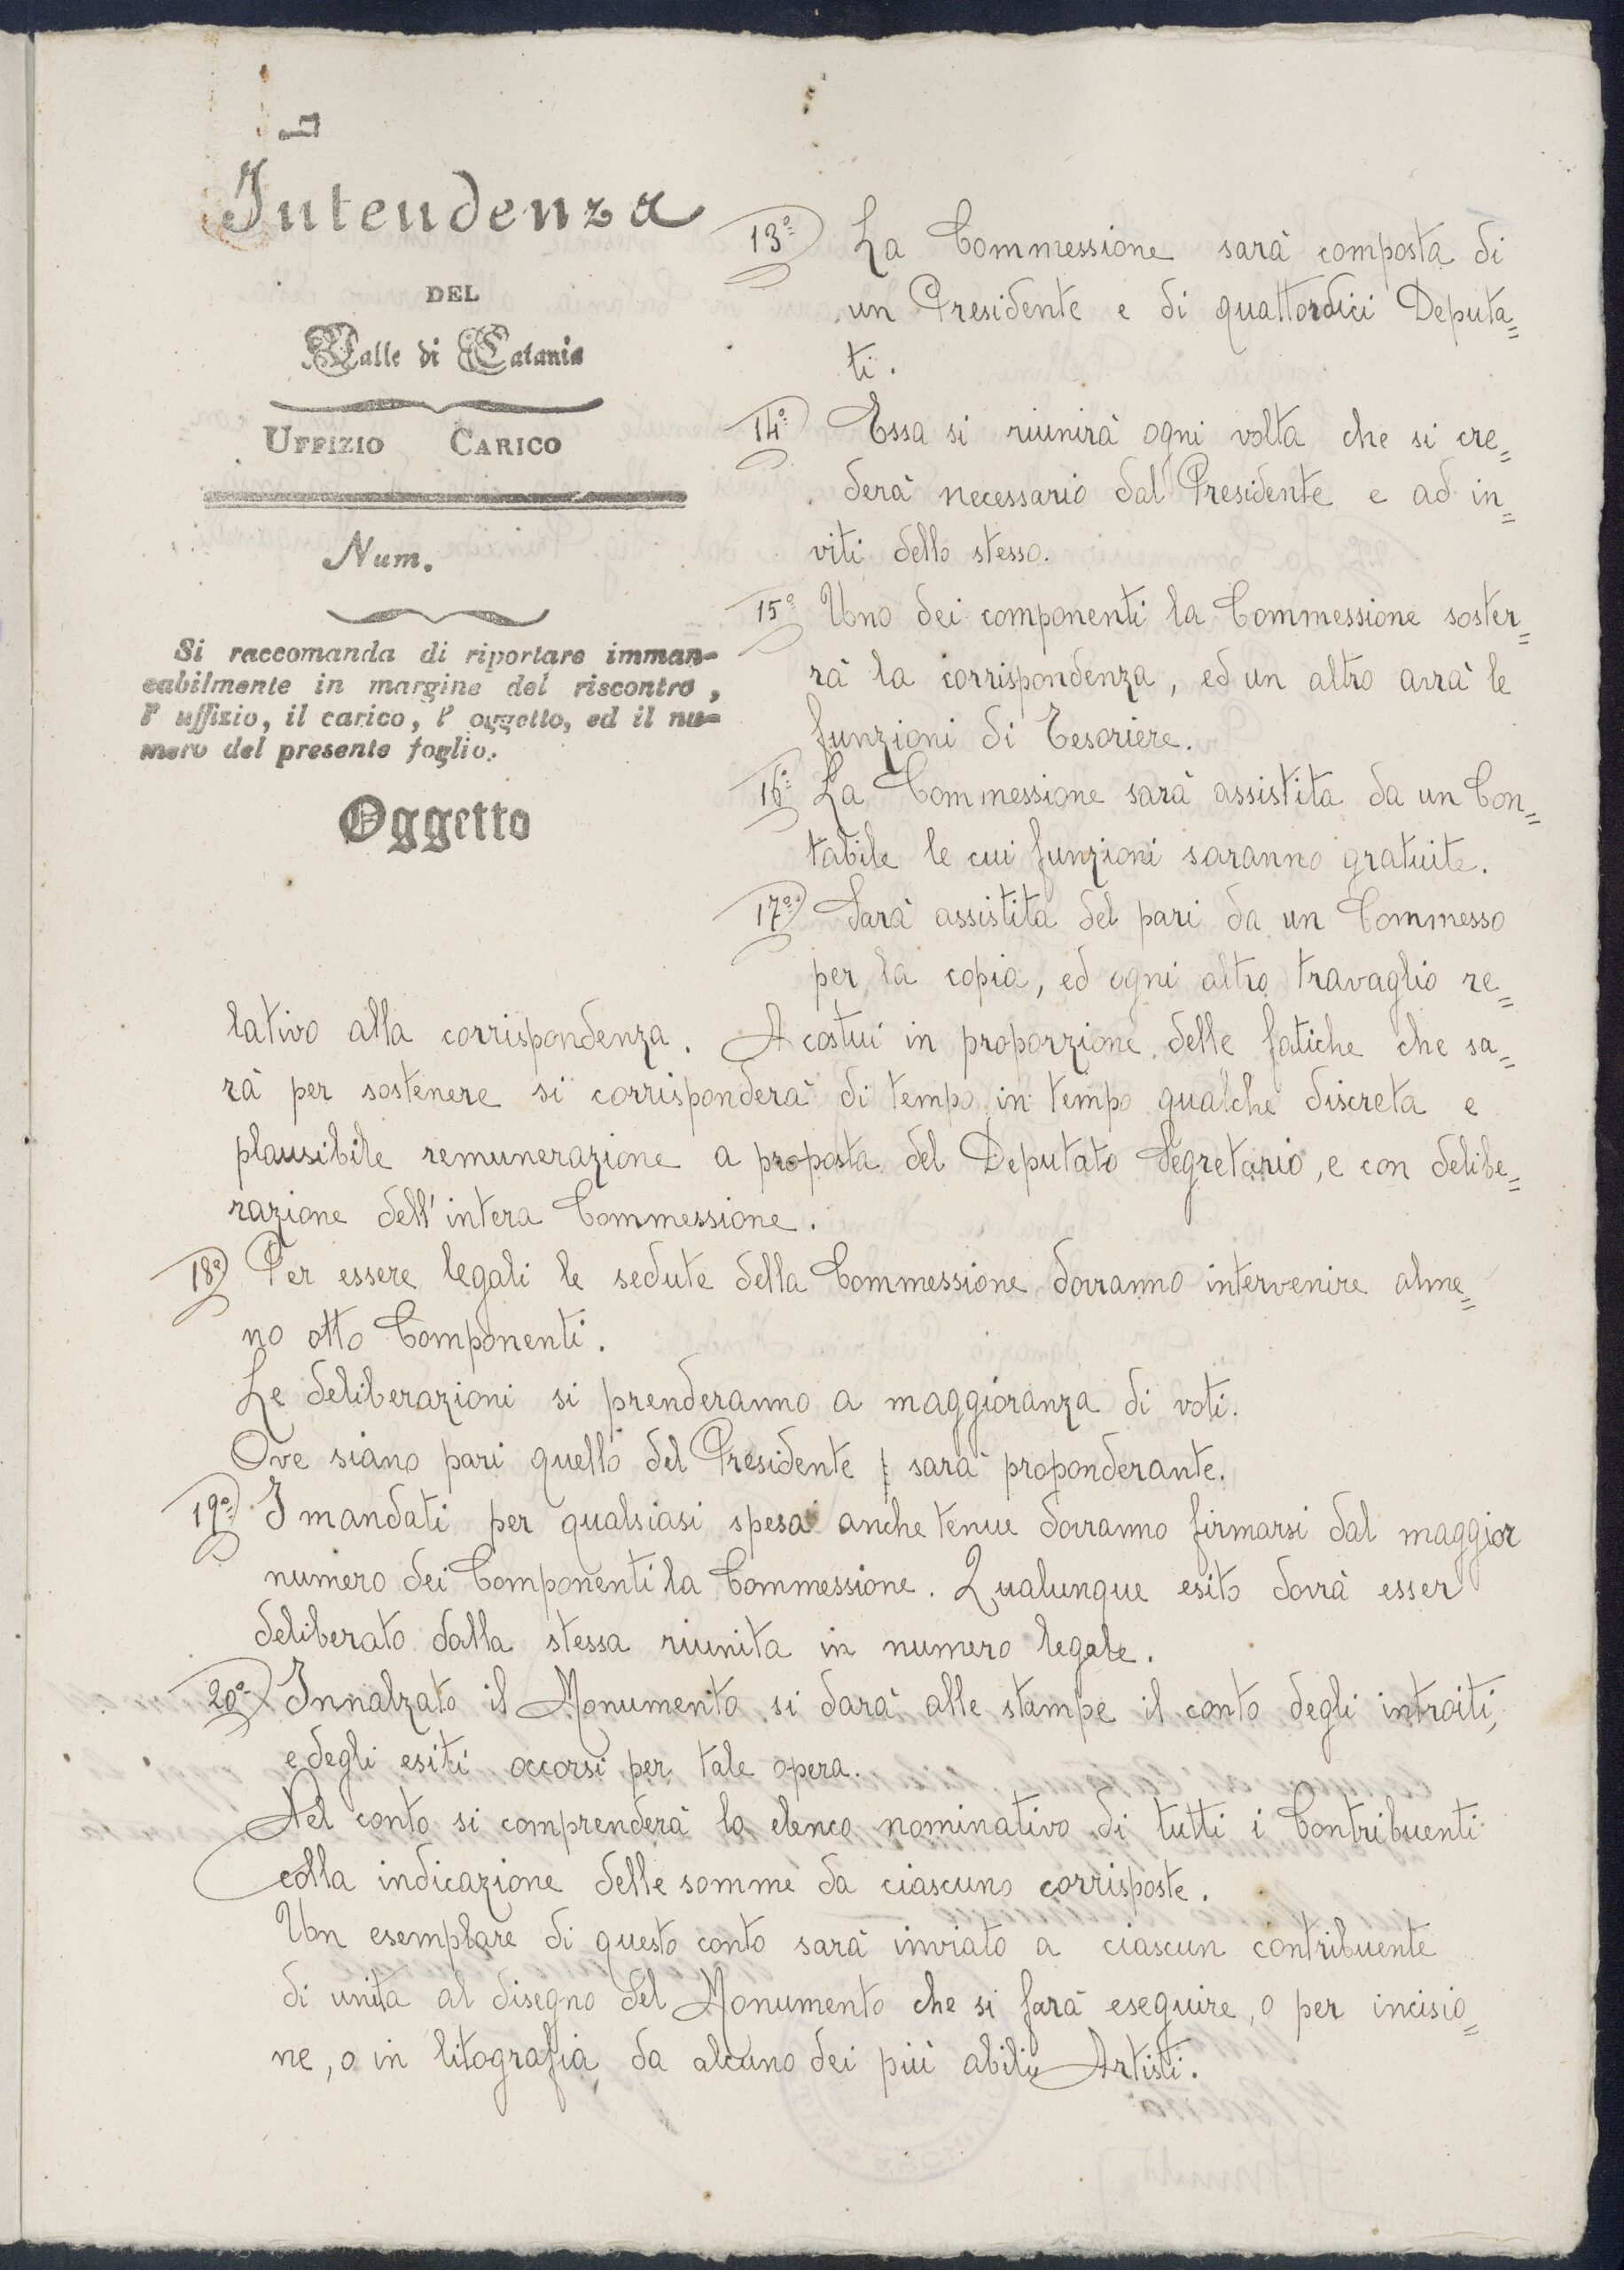 Intendenza
DEL
Valle di Catania
UFFIZIO CARICO
Num.
Si raccomanda di riportare imman=
cabilmente in margine del riscontro,
l' uffizio, il carico, l' oggetto, ed il nu=
mero del presente foglio.
Oggetto
13º La Commessione sarà composta di
un Presidente e di quattordici Deputa=
ti.
14º Essa si riunirà ogni volta che si cre=
derà necessario dal Presidente e ad in=
viti dello stesso.
15º Uno dei componenti la Commessione soster=
rà la corrispondenza, ed un altro avrà le
funzioni di Tesoriere.
16º La Commessione sarà assistita da un Con=
tabile le cui funzioni saranno gratuite.
17º Sarà assistita del pari da un Commesso
per la copia, ed ogni altro travaglio re=
lativo alla corrispondenza. A costui in proporzione delle fatiche che sa=
rà per sostenere si corrisponderà di tempo in tempo qualche discreta e
plausibile remunerazione a proposta del Deputato Segretario, e con delibe=
razione dell'intera Commessione.
18º Per essere legali le sedute della Commessione dovranno intervenire alme=
no otto Componenti.
Le deliberazioni si prenderanno a maggioranza di voti.
Ove siano pari quello del Presidente sarà proponderante.
19º I mandati per qualsiasi spesa anche tenue dovranno firmarsi dal maggior
numero dei Componenti la Commessione. Qualunque esito dovrà esser
deliberato dalla stessa riunita in numero legale.
20º Innalzato il Monumento si darà alle stampe il conto degli introiti,
e degli esiti occorsi per tale opera.
Nel conto si comprenderà lo elenco nominativo di tutti i Contribuenti
colla indicazione delle somme da ciascuno corrisposte.
Un esemplare di questo conto sarà inviato a ciascun contribuente
di unita al disegno del Monumento che si farà eseguire, o per incisio=
ne, o in litografia, da alcuno dei più abili Artisti.